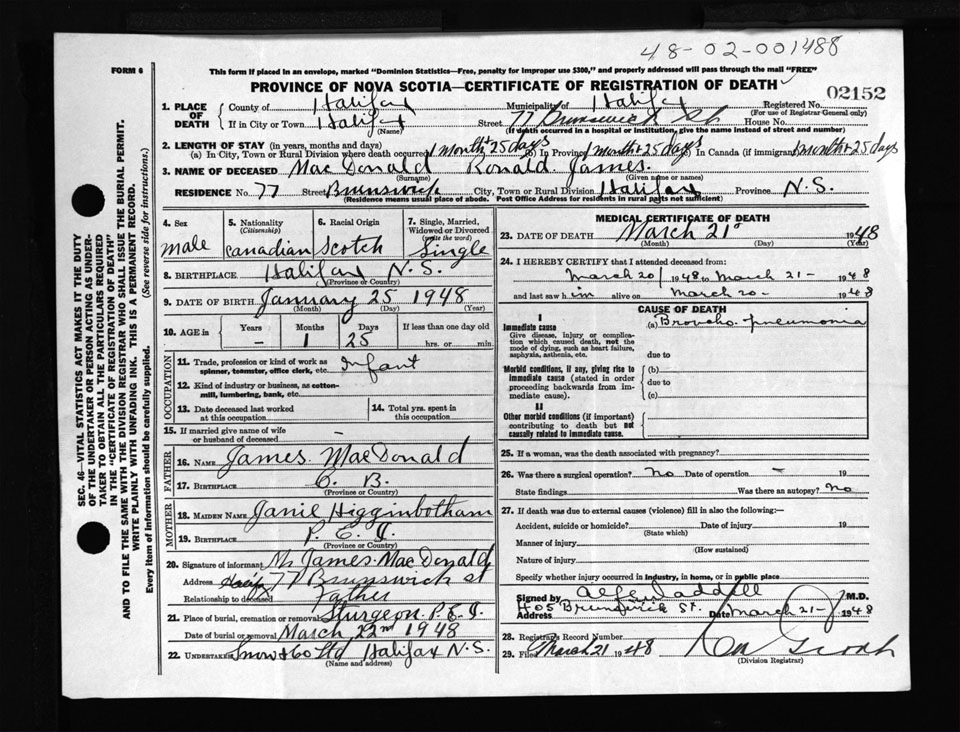 48-02-001488
FORM 6
This form if placed in an envelope, marked "Dominion Statistics—Free, penalty for improper use $300," and properly addressed will pass through the mail "FREE"
PROVINCE OF NOVA SCOTIA—CERTIFICATE OF REGISTRATION OF DEATH
02152
1. PLACE OF DEATH
County of Halifax Municipality of Halifax Registered No.
(For use of Registrar General only)
If in City or Town Halifax Street 77 Brunswick St House No.
(Name) (If death occurred in a hospital or institution, give the name instead of street and number)
2. LENGTH OF STAY (in years, months and days)
(a) In City, Town or Rural Division where death occurred 1 month + 25 days (b) In Province 1 month + 25 days In Canada (if immigrant) 1 month + 25 days
3. NAME OF DECEASED MacDonald Ronald James
(Surname) (Given name or names)
RESIDENCE No. 77 Street Brunswick City, Town or Rural Division Halifax Province N.S.
(Residence means usual place of abode. Post Office Address for residents in rural parts not sufficient)
4. Sex
male
5. Nationality
(Citizenship)
Canadian
6. Racial Origin
Scotch
7. Single, Married, Widowed or Divorced
(write the word)
Single
8. BIRTHPLACE Halifax N.S.
(Province or Country)
9. DATE OF BIRTH January 25 1948
(Month) (Day) (Year)
10. AGE in
Years Months Days If less than one day old
– 1 25 hrs. or min.
OCCUPATION
11. Trade, profession or kind of work as spinner, teamster, office clerk, etc. Infant
12. Kind of industry or business, as cotton-mill, lumbering, bank, etc.
13. Date deceased last worked at this occupation
14. Total yrs. spent in this occupation
15. If married give name of wife or husband of deceased –
FATHER
16. NAME James MacDonald
17. BIRTHPLACE C. B.
(Province or Country)
MOTHER
18. MAIDEN NAME Janie Higginbotham
19. BIRTHPLACE P. E. I.
(Province or Country)
20. Signature of informant Mr James MacDonald
Address 77 Brunswick st
Relationship to deceased Father
21. Place of burial, cremation or removal Sturgeon. P.E.I.
Date of burial or removal March 22nd 1948
22. UNDERTAKER Snow & Co Ltd Halifax N.S.
(Name and address)
MEDICAL CERTIFICATE OF DEATH
23. DATE OF DEATH March 21st 1948
(Month) (Day) (Year)
24. I HEREBY CERTIFY that I attended deceased from:
March 20/ 1948 to March 21- 1948
and last saw him alive on March 20- 1948
CAUSE OF DEATH
I
Immediate cause
Give disease, injury or complication which caused death, not the mode of dying, such as heart failure, asphyxia, asthenia, etc.
(a) Broncho. pneumonia
due to
Morbid conditions, if any, giving rise to immediate cause (stated in order proceeding backwards from immediate cause).
(b)
due to
(c)
II
Other morbid conditions (if important) contributing to death but not causally related to immediate cause.
25. If a woman, was the death associated with pregnancy?
26. Was there a surgical operation? No Date of operation – 19
State findings Was there an autopsy? No
27. If death was due to external causes (violence) fill in also the following:—
Accident, suicide or homicide? Date of injury 19
(State which)
Manner of injury
(How sustained)
Nature of injury
Specify whether injury occurred in industry, in home, or in public place
Signed by M.D.
Address 405 Brunswick St. Date March 21- 1948
28. Registrar's Record Number
29. Filed March 21 1948
(Division Registrar)
SEC. 46—VITAL STATISTICS ACT MAKES IT THE DUTY OF THE UNDERTAKER OR PERSON ACTING AS UNDERTAKER TO OBTAIN ALL THE PARTICULARS REQUIRED IN THE "CERTIFICATE OF REGISTRATION OF DEATH" AND TO FILE THE SAME WITH THE DIVISION REGISTRAR WHO SHALL ISSUE THE BURIAL PERMIT.
WRITE PLAINLY WITH UNFADING INK. THIS IS A PERMANENT RECORD.
Every item of information should be carefully supplied. (See reverse side for instructions.)